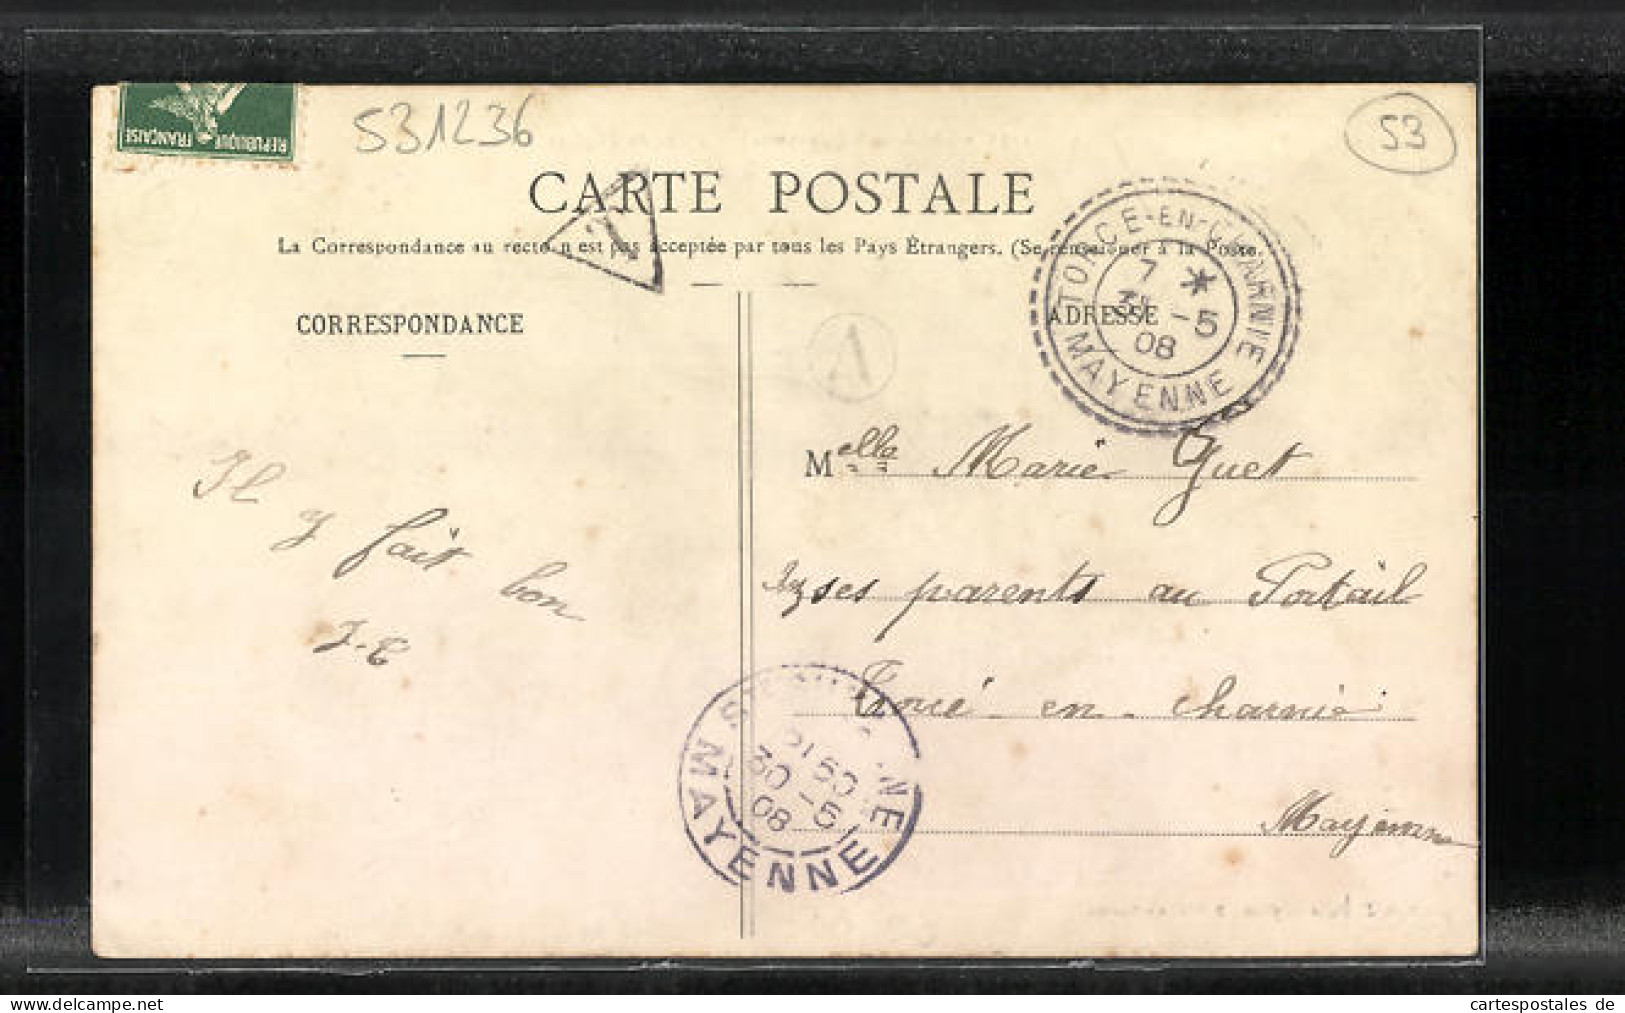 REPUBLIQUE FRANÇAISE
531236
53
CARTE POSTALE
La Correspondance au recto n'est pas acceptée par tous les Pays Étrangers. (Se renseigner à la Poste.
T
TORCE-EN-CHARNIE
7 *
31 -5
08
MAYENNE
CORRESPONDANCE
ADRESSE
A
Melle Marie Guet
ses parents au Portail
Torcé en charnie
Mayenne
Il
y fait bon
30 -5
08
MAYENNE
www.delcampe.net
cartespostales de